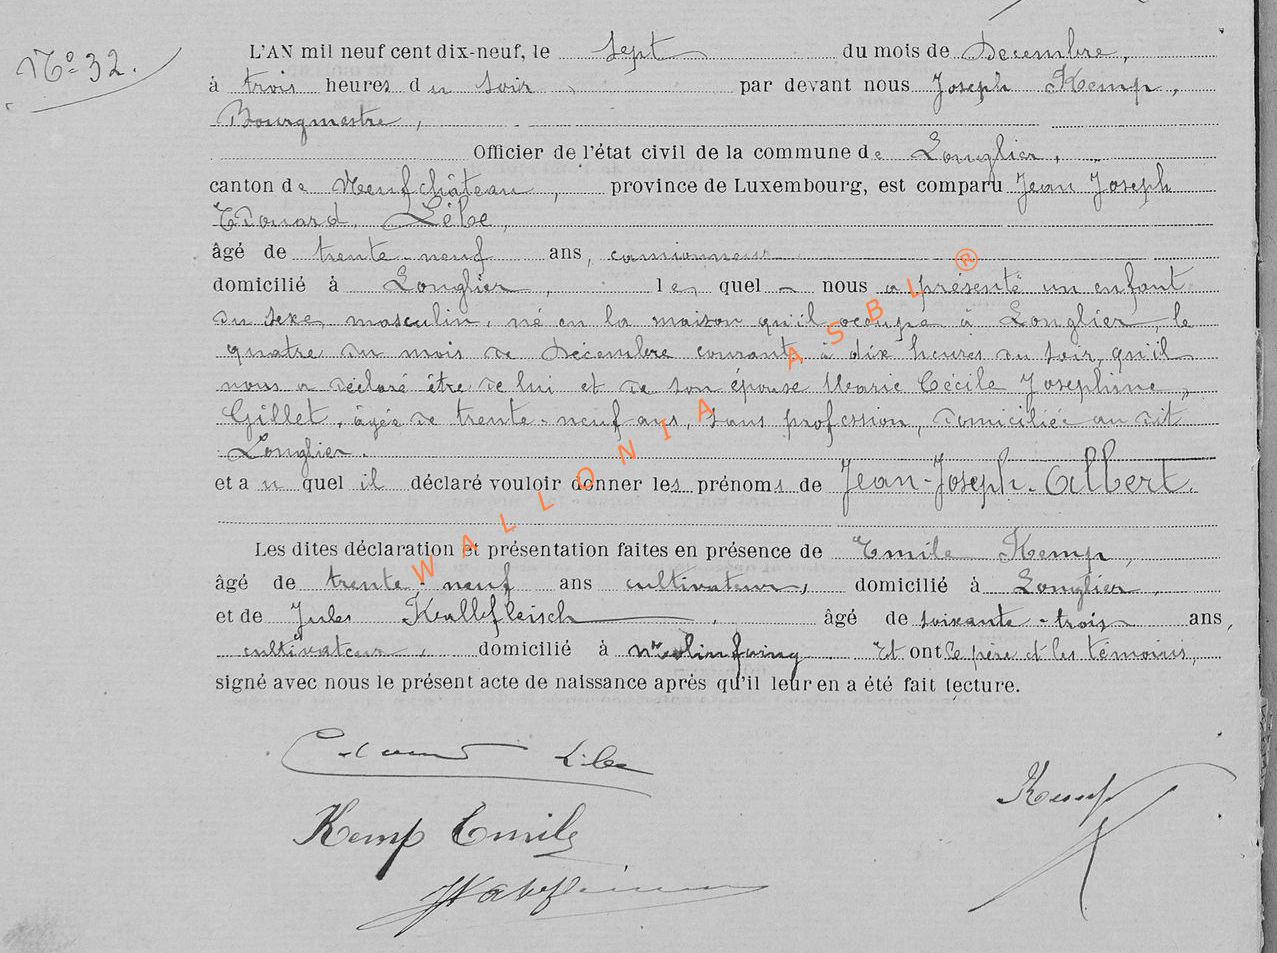 N° 32.
L'AN mil neuf cent dix-neuf, le sept du mois de Décembre,
à trois heures du soir par devant nous Joseph Kemp,
Bourgmestre,
Officier de l'état civil de la commune de Longlier,
canton de Neufchâteau, province de Luxembourg, est comparu Jean Joseph
Edouard Lèbe,
âgé de trente-neuf ans, camionneur
domicilié à Longlier, lequel nous a présenté un enfant
du sexe masculin, né en la maison qu'il occupe à Longlier, le
quatre du mois de Décembre courant, à dix heures du soir, qu'il
nous a déclaré être de lui et de son épouse Marie Cécile Josephine
Gillet, âgée de trente-neuf ans, sans profession, domiciliée au dit
Longlier.
et au quel il déclaré vouloir donner les prénoms de Jean-Joseph-Albert
Les dites déclaration et présentation faites en présence de Emile Kemp,
âgé de trente-neuf ans cultivateur, domicilié à Longlier,
et de Jules Kalbfleisch, âgé de soixante-trois ans,
cultivateur, domicilié à Molinfaing Et ont le père et les témoins,
signé avec nous le présent acte de naissance après qu'il leur en a été fait lecture.
Edouard Lèbe
Kemp
Kemp Emile
WALLONIA ASBL ®